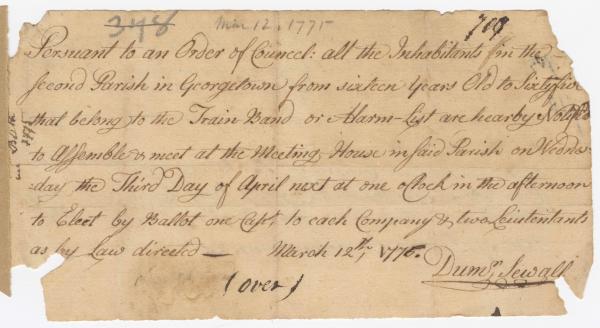 348
Mar 12, 1775
709
Persuant to an Order of Councel: all the Inhabitants in the
second Parish in Georgetown from sixteen Years Old to Sixtyfive
that belong to the Train Band or Alarm-List are hearby Notifi'd
to Assemble & meet at the Meeting House in said Parish on Wednes-
day the Third Day of April next at one oClock in the afternoon
to Elect by Ballot one Capt. to each Company & two Leiutentants
as by Law directed — March 12th, 1776.
Dumr. Sewall
(over)